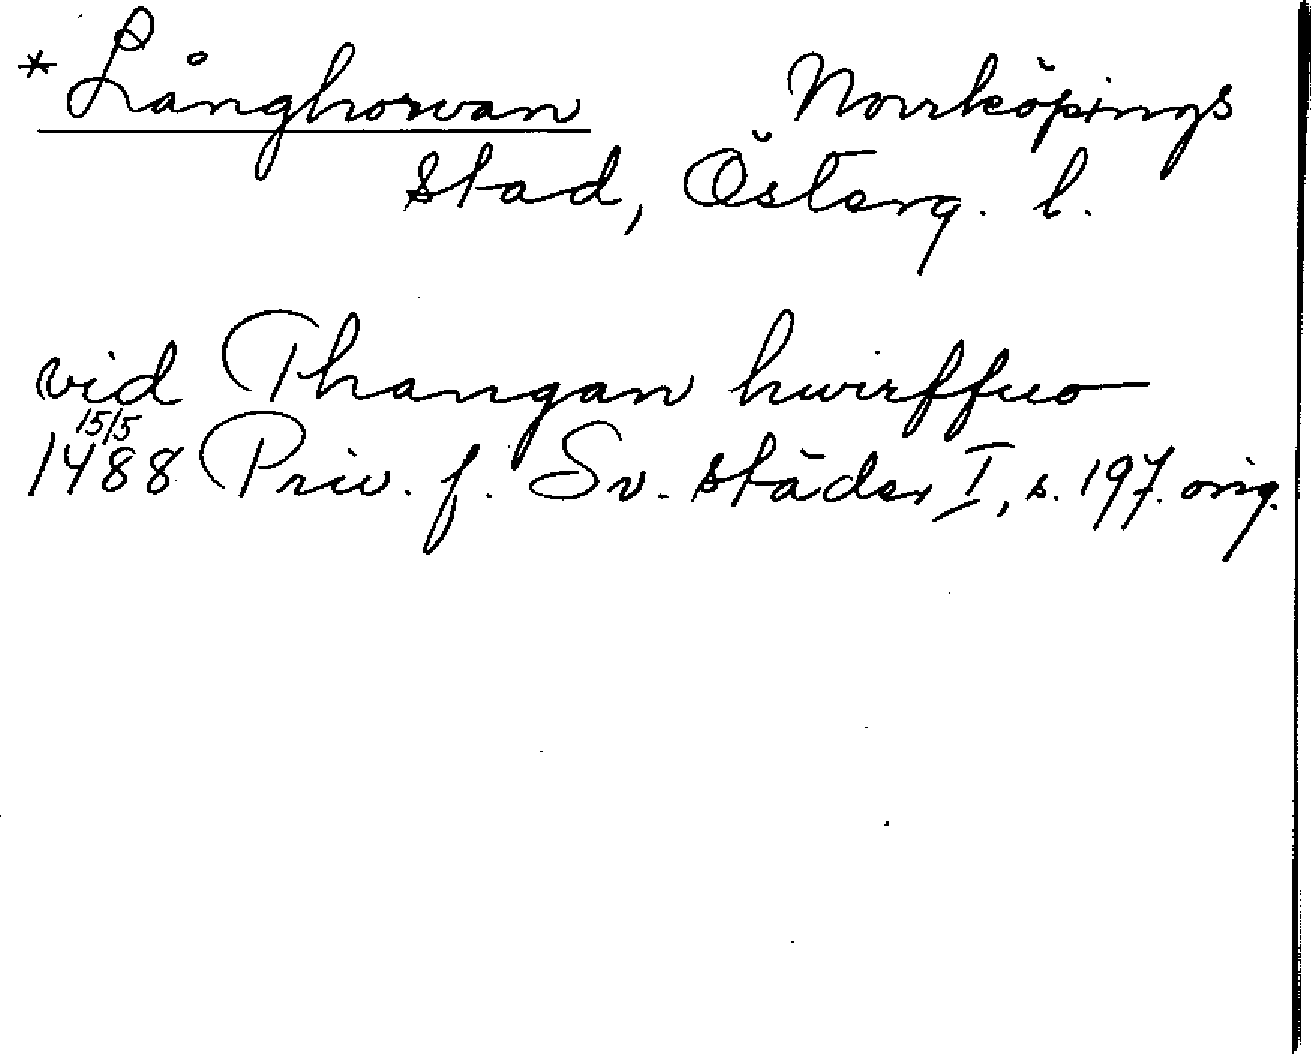 * Långhorvan Norrköpings
stad, Österg. l.
vid Thangan hwirffuo
15/5
1488 Priv. f. Sv. städer I, s. 197. orig.